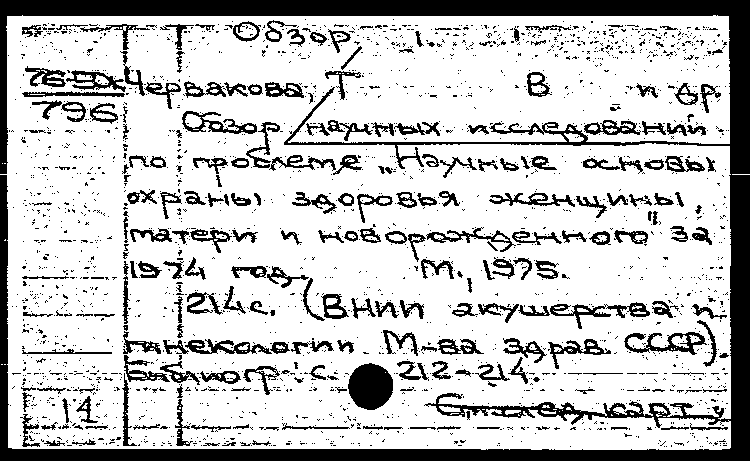 Обзор 1.
Червакова, Т В и др.
796
Обзор научных исследований
по проблеме „Научные основы
охраны здоровья женщины,
матери и новорожденного" за
1974 год. М., 1975.
214 с. (ВНИИ акушерства и
гинекологии М-ва здрав. СССР).
Библиогр.: с. 212-214.
14 карт